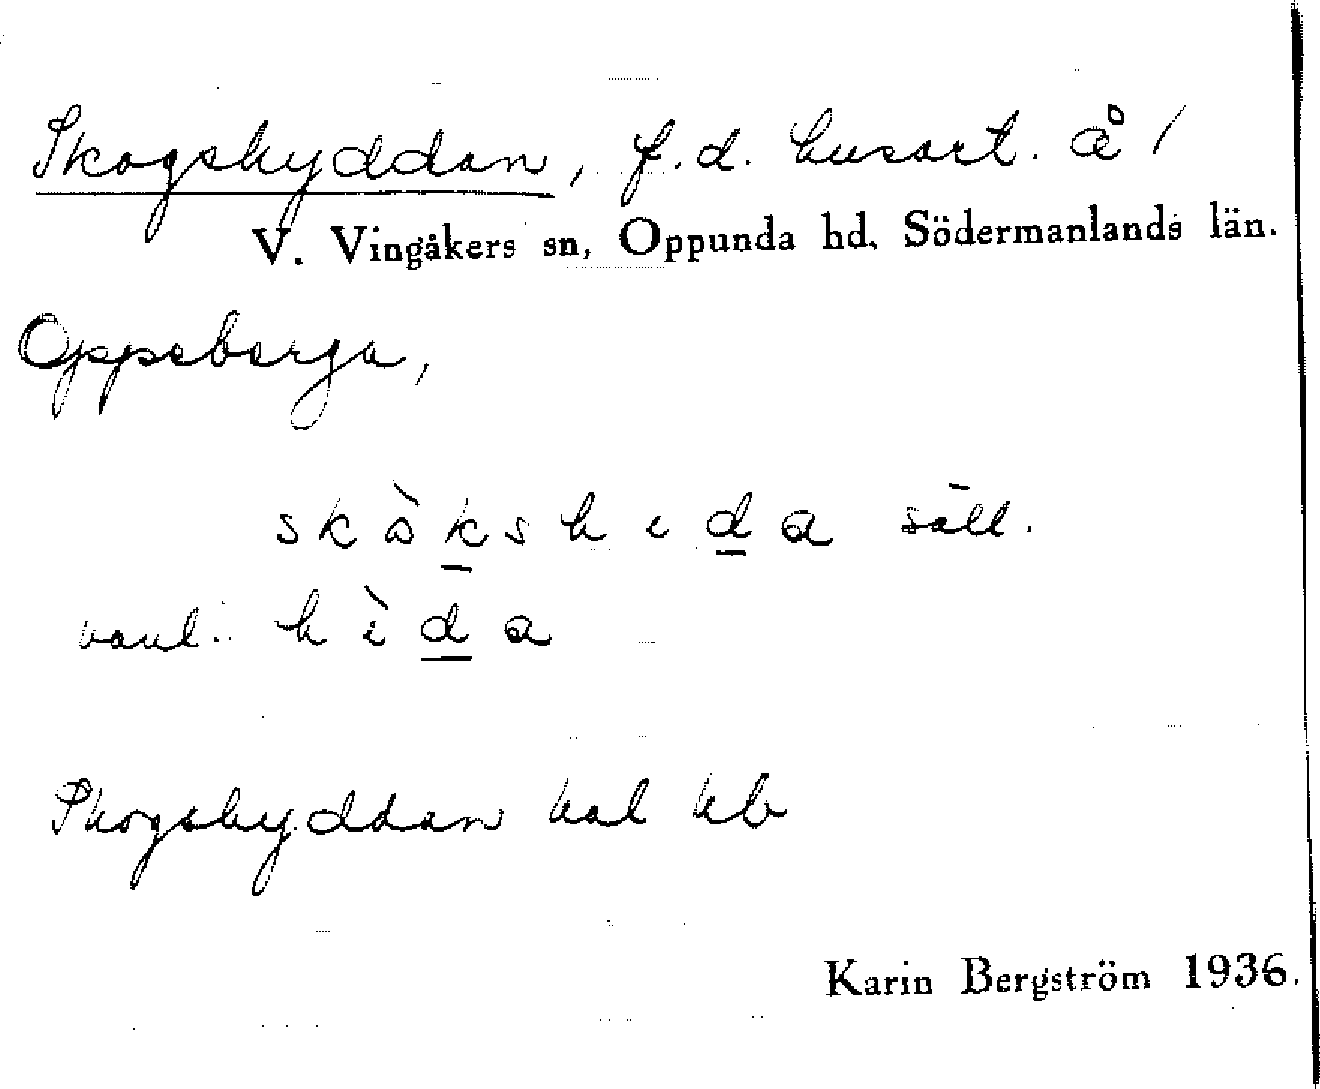 Skogshyddan, f.d. husart. å /
V. Vingåkers sn, Oppunda hd, Södermanlands län.
Oppeberga,
skòkshida säll.
vanl.: hìda
Skogshyddan kal hb
Karin Bergström 1936.